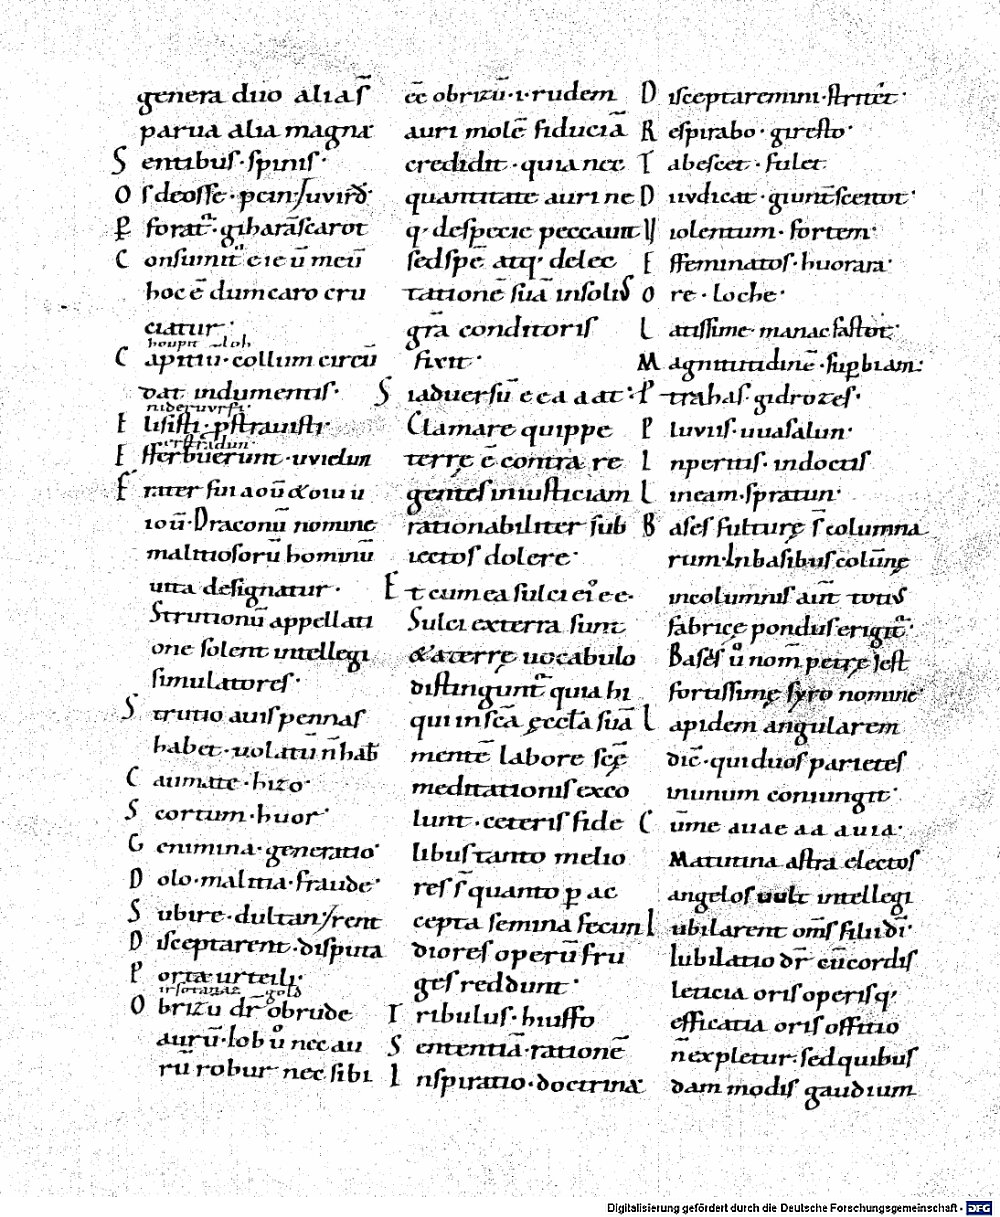 genera duo alia s̄
parua alia magna
Sentibus · spinis ·
Os de osse · pein
forat · giharascarot
Consumit
hoc ē dum caro cru
ciatur ·
houpit loh
Capitiū · collum circū
dat indumentis ·
nideruursi ·
Elisisti · p̄strauistr
Efferbuerunt · uvielun
Frater fui
Draconū nomine
malitiosorū hominū
uita designatur ·
Strutionū appellati
one solent intellegi
simulatores ·
Strutio auis pennas
habet · uolatū n̄ hab̄
Caumate · hizo ·
Scortum · huor ·
Genimina · generatio ·
Dolo · malitia · fraude ·
Subire · dultan
Disceptarent · disputa
Porta urteili ·
gold
Obrizū dr̄ obrude
aurū · Iob ū nec au
rū robur nec sibi
ēē obrizū · i · rudem
auri molē fiduciā
credidit · quia nec
quantitate auri ne
q· de specie peccauit
sed spē atq· delec
tationē suā in soliꝰ
grā conditoris
fixit ·
Si aduersū
Clamare quippe
terrę ē contra re
gentes iniusticiam
rationabiliter sub
iectos dolere ·
Et cum ea sulci
Sulci ex terra sunt
& a terrę uocabulo
distingunt quia hi
qui in scā ęccła suā
mentē labore scę
meditationis exco
lunt · ceteris fide
libus tanto melio
res s̄ quanto ꝑ ac
cepta semina fecun
diores operū fru
ges reddunt ·
Tribulus · hiuffo
Sententiā · rationē
Inspiratio · doctrina
Disceptaremini · stritet ·
Respirabo · giresto ·
Tabescet · fulet
Diudicat · giuntsceitot ·
Uiolentum · fortem ·
Effeminatos · huorara ·
Ore · loche ·
Latissime · manacfastot ·
Magnitudinē · suꝑbiam :
Ptrahas · gidrozes ·
Pluuiis · uuasalun ·
Inperitis · indoctis
Lineam · spratun ·
Bases fulturę s̄ columna
rum · In basibus colūnę
in columnis aut totiꝰ
fabricę pondus erigit ·
Bases ū nom̄ petrę est
fortissimę syro nomine
Lapidem angularem
dic̄ · qui duos parietes
in unum coniungit ·
Cūme
Matutina astra electos
angelos uult intellegi
Iubilarent om̄s filii dī ·
Iubilatio dr̄ cū cordis
leticia oris operisq·
efficatia oris offitio
n̄ expletur · sed quibus
dam modis gaudium
Digitalisierung gefördert durch die Deutsche Forschungsgemeinschaft - DFG